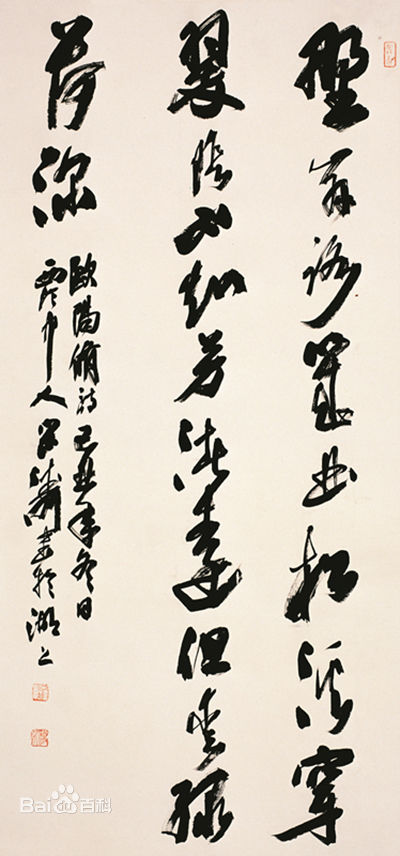 野岸溪幾曲松蹊穿
翠陰不知芳渚遠但愛綠
荷深
歐陽脩詩己丑年冬日
人書於湖上
Baidu百科